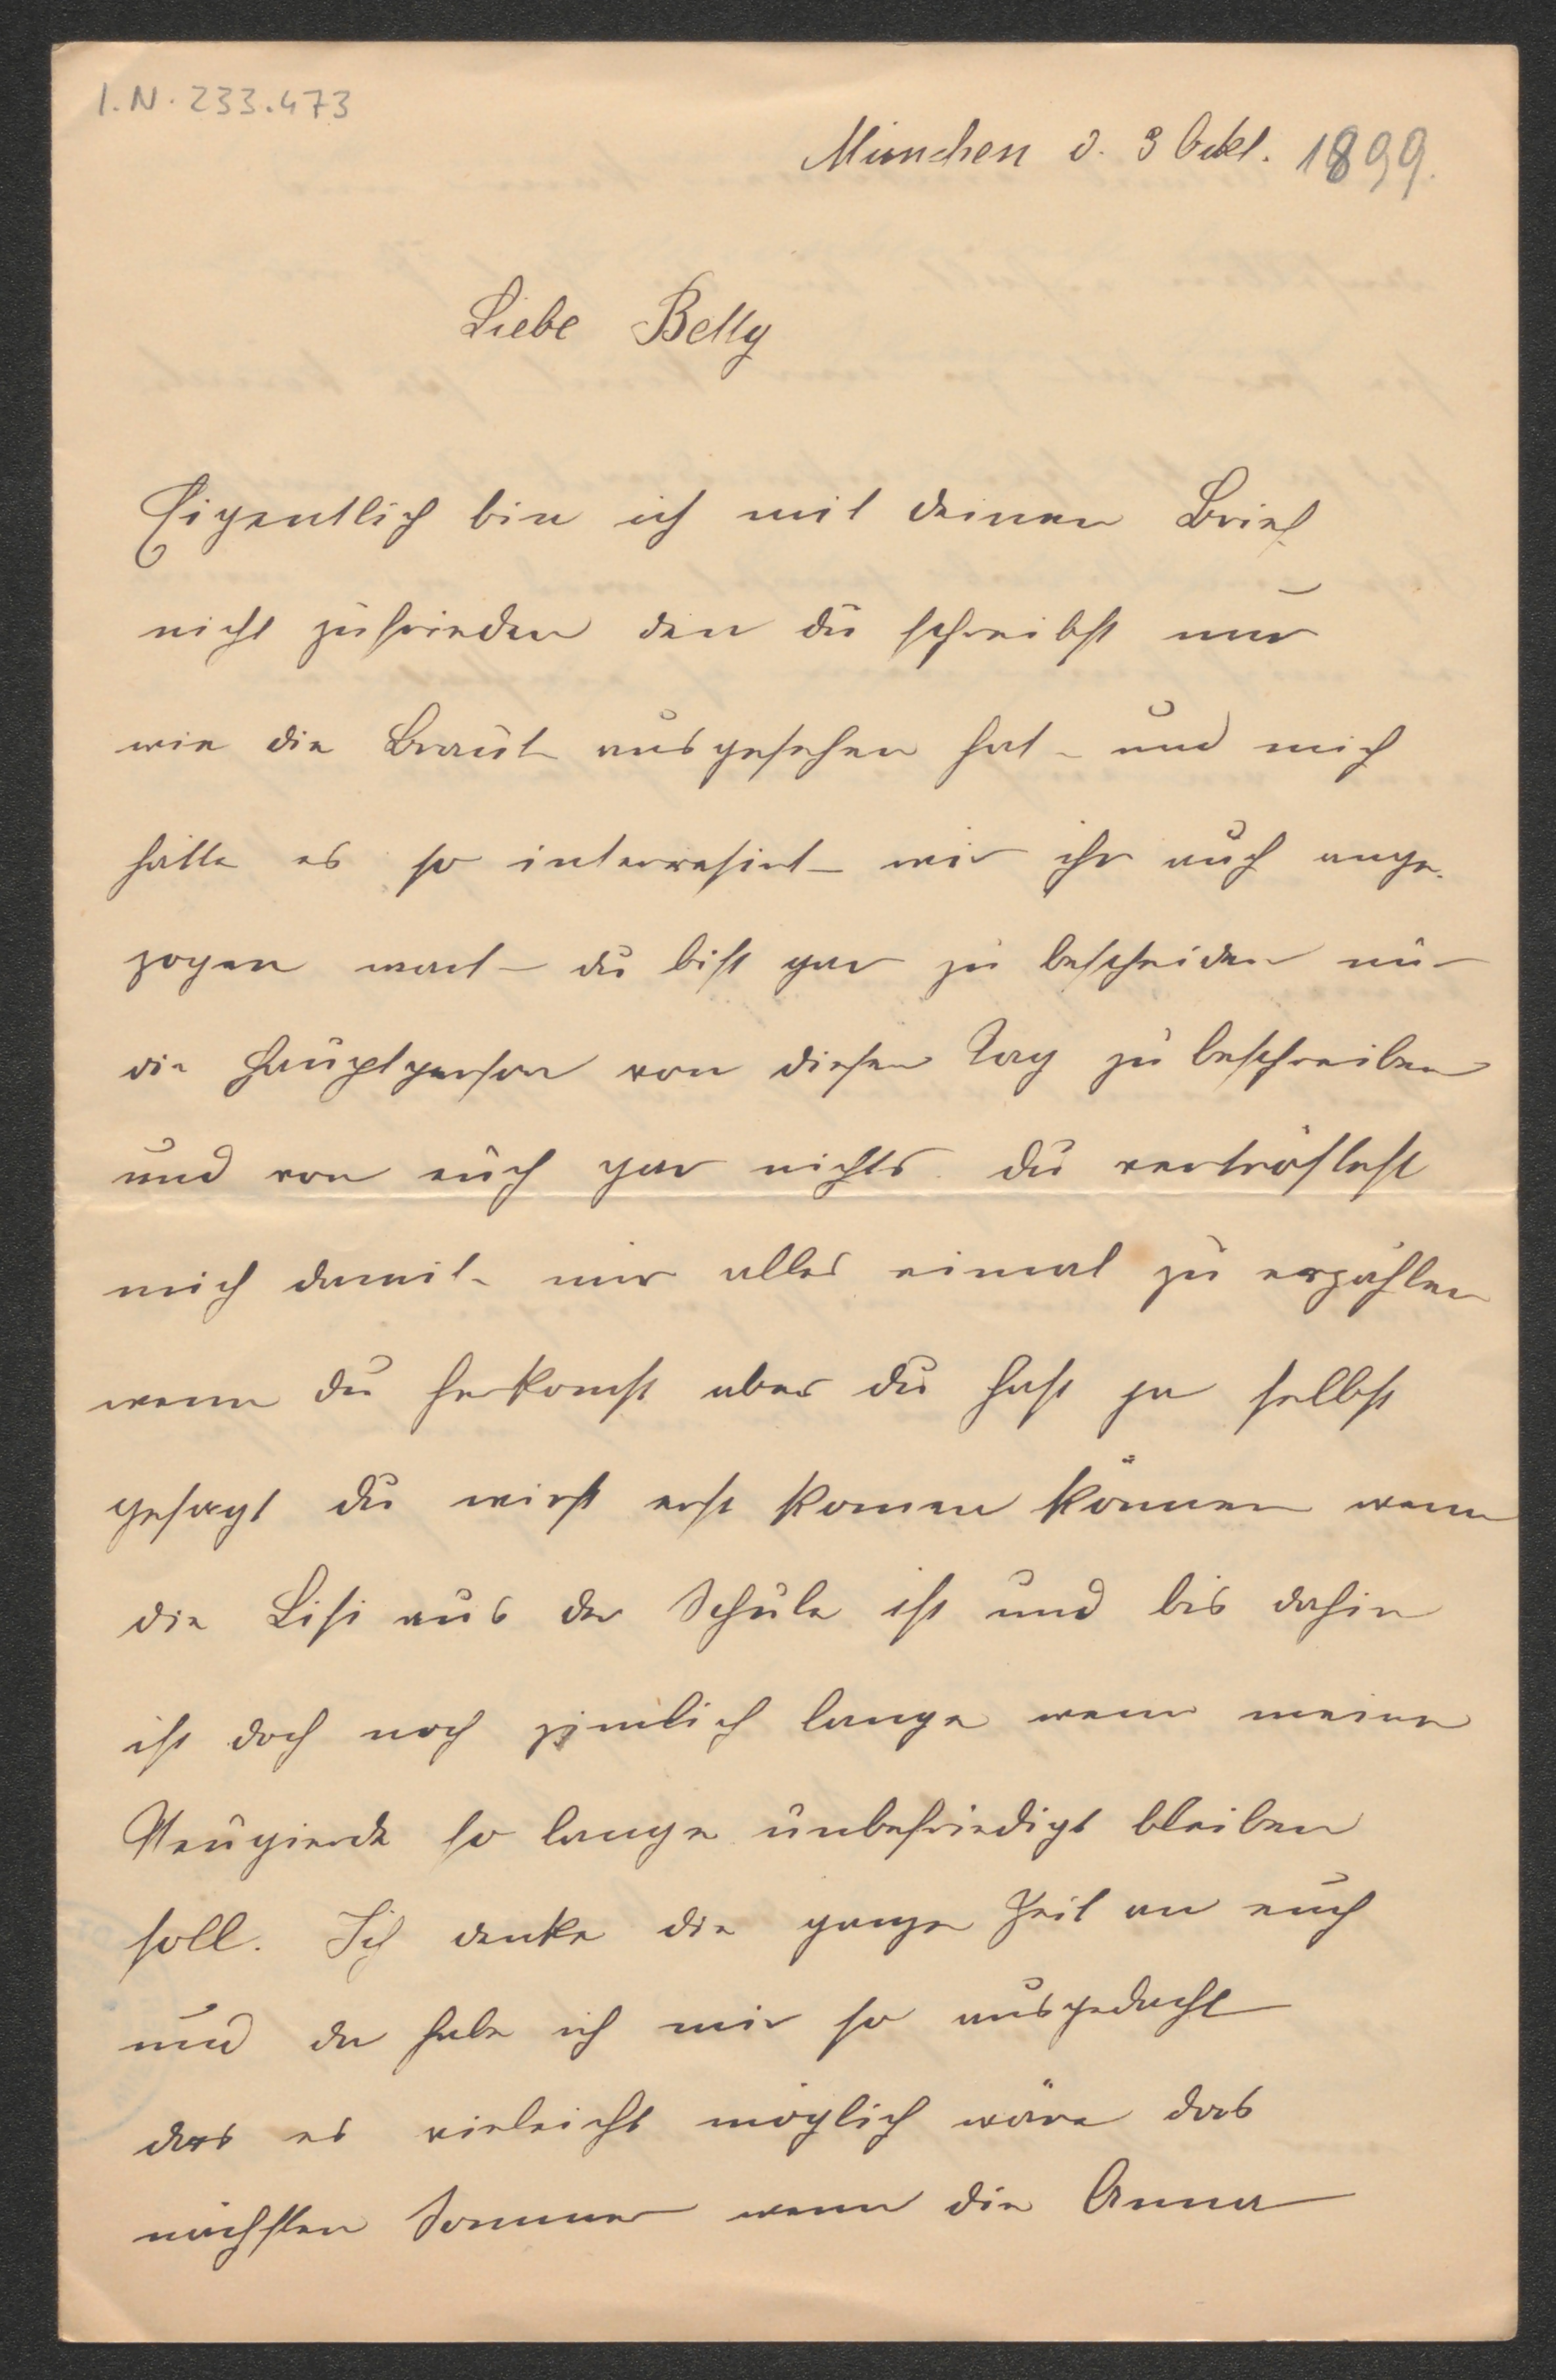 I.N. 233.473
München d. 3 Ockt. 1899.
Liebe Betty
Eigentlich bin ich mit deinen Brief
nicht zufrieden den du schreibst nur
wie die Braut ausgesehen hat – und mich
hätte es so interresirt – wie ihr auch ange-
zogen wart – du bist gar zu bescheiden nur
die Hauptperson von diesen Tag zu beschreiben
und von euch gar nichts. du vertröstest
mich damit – mir alles einmal zu erzählen
wenn du herkomst aber du hast ja selbst
gesagt du wirst erst komen können wenn
die Lisi aus der Schule ist und bis dahin
ist doch noch zimlich lange wenn meine
Neugierde so lange unbefriedigt bleiben
soll. Ich denke die ganze Zeit an euch
und da habe ich mir so ausgedacht
das es vieleicht möglich wäre das
nächsten Sommer wenn die Anna